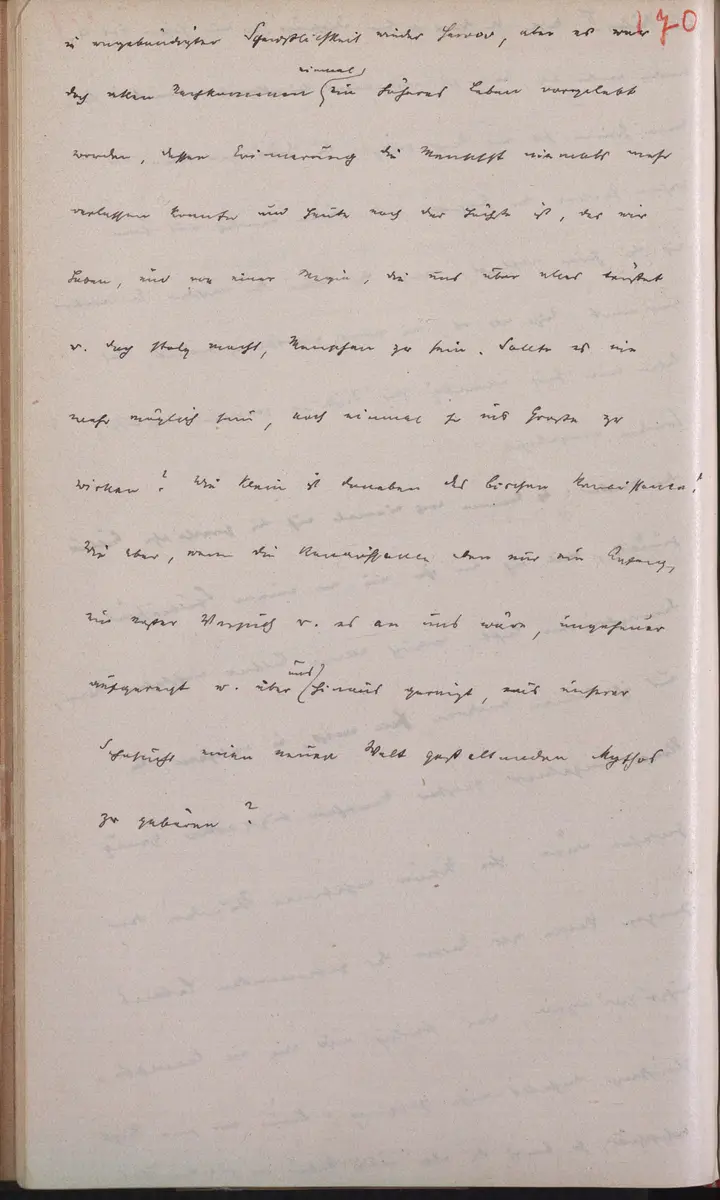 170
in ungebändigter Scheußlichkeit wieder hervor, aber es war
doch allen Nachkommen einmal ein höheres Leben vorgelebt
worden, dessen Erinnerung die Menschheit niemals mehr
verlassen konnte und heute noch das Höchste ist, das wir
haben, und von einer Magie, die uns über alles tröstet
u. doch stolz macht, Menschen zu sein. Sollte es nie
mehr möglich sein, noch einmal so ins Große zu
wirken? Wie klein ist daneben das bischen Renaissance!
Wie aber, wenn die Renaissance eben nur ein Anfang,
ein erster Versuch u. es an uns wäre, ungeheuer
aufgeregt u. über uns hinaus geneigt, aus unserer
Sehnsucht einen neuen Welt gestaltenden Mythos
zu gebären?